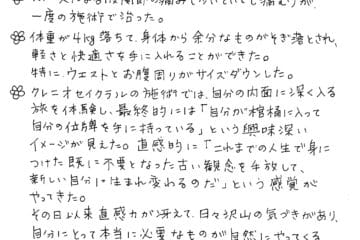 一度の施術で治った。
体重が4kg落ちて、身体から余分なものがそぎ落とされ、
軽さと快適さを手に入れることができた。
特に、ウエストとお腹周りがサイズダウンした。
クレニオセイクラルの施術では、自分の内面に深く入る
旅を体験し、最終的には「自分が棺桶に入って
自分の位牌を手に持っている」という興味深い
イメージが見えた。直感的に「これまでの人生で身に
つけた既に不要となった古い観念を手放して、
新しい自分に生まれ変わるのだ」という感覚が
やってきた。
その日以来直感力が冴えて、日々沢山の気づきがあり、
自分にとって本当に必要なものが自然にやってくる